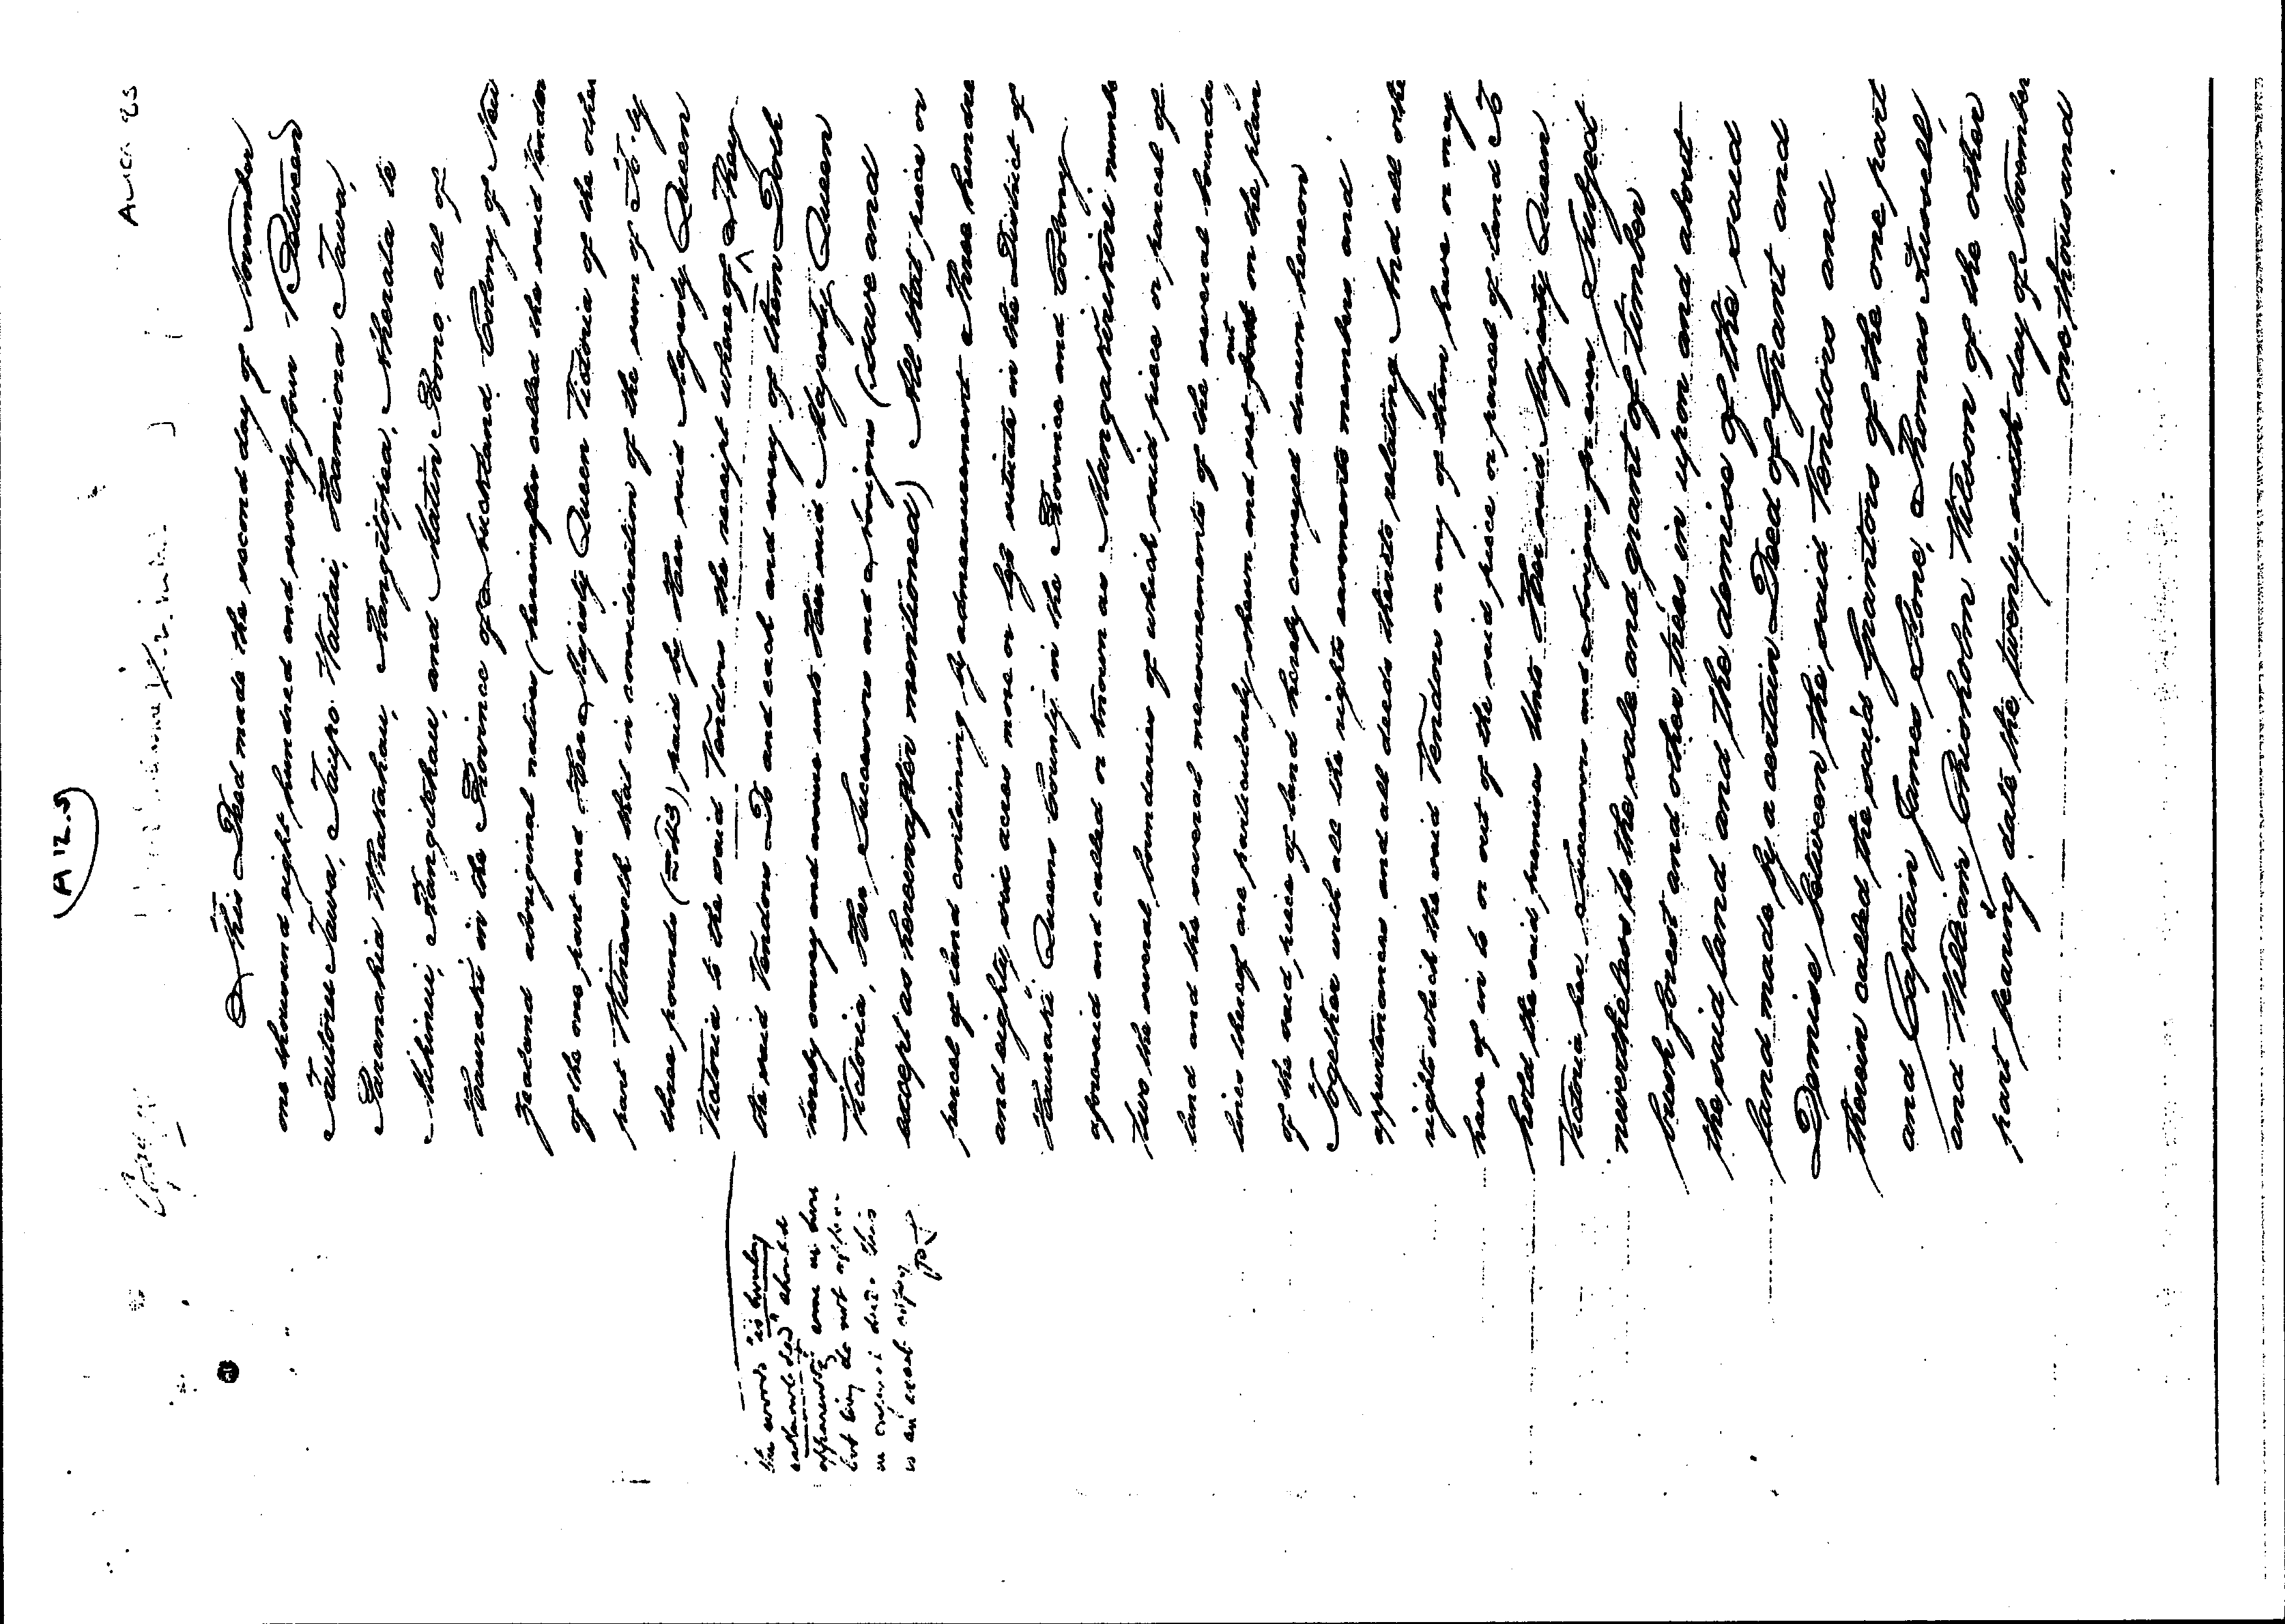 (A 123)
This Deed made the second day of November
one thousand eight hundred and seventy four Between
Tautoru Tawa, Taipo Hatai, Hamiora Tawa,
Paronakia Whakahau, Rangitopea, Merata te
Mihinui, Tangitehau, and Matiu Pono, all of
Hauraki in the Province of Auckland Colony of New
Zealand aboriginal natives (hereinafter called the said Vendor
of the one part and Her Majesty Queen Victoria of the other
part Witnesseth that in consideration of the sum of
three pounds (£43) paid by Her said Majesty Queen
Victoria to the said Vendors the receipt whereof ^ They
the said Vendors Do and each and every of them Doth
hereby convey and assure unto Her said Majesty Queen
Victoria, Her Successors and Assigns (save and
except as hereinafter mentioned) All that piece or
parcel of land containing by admeasurement Three hundre
and eighty six acres more or less situate in the District of
Hauraki Queens County in the Province and Colony
aforesaid and called or known as Mangakirikiri numb
two the several boundaries of which said piece or parcel of
land and the several measurements of the several bounda
lines thereof are particularly shewn and set out on the plan
of the said piece of land hereby conveyed drawn hereon
Together with all the rights easements members and
appurtenances and all deeds thereto relating And all othe
rights which the said Vendors or any of them have or may
have of in to or out of the said piece or parcel of land To
hold the said premises Unto Her said Majesty Queen
Victoria her Successors and Assigns for ever Subject
nevertheless to the sale and grant of timber
bush forest and other trees in upon and about
the said land and the demise of the said
land made by a certain Deed of Grant and
Demise between the said Vendors and
therein called the said Grantors of the one part
and Captain James Stone, Thomas Russell,
and William Chisholm Wilson of the other
part bearing date the twenty-sixth day of November
one thousand
the words "is hereby
acknowledged" should
apparently come in here
but they do not appear
in original deed. This
is an exact copy